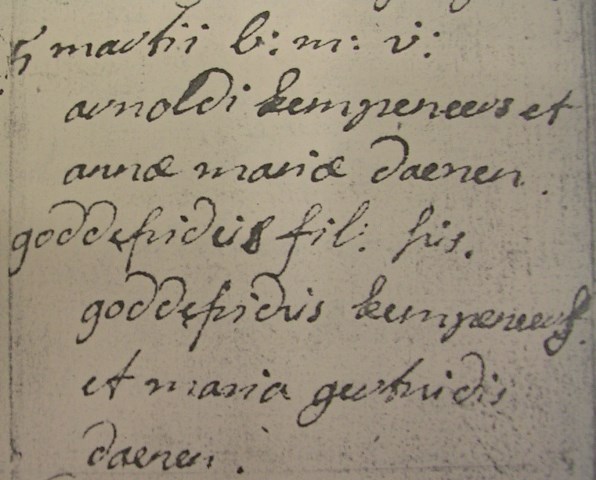 5 martii b: m: v:
arnoldi kempeneers et
annæ mariæ daenen.
goddefridus fil: sus.
goddefridus kempeneers.
et maria gertrudis
daenen.